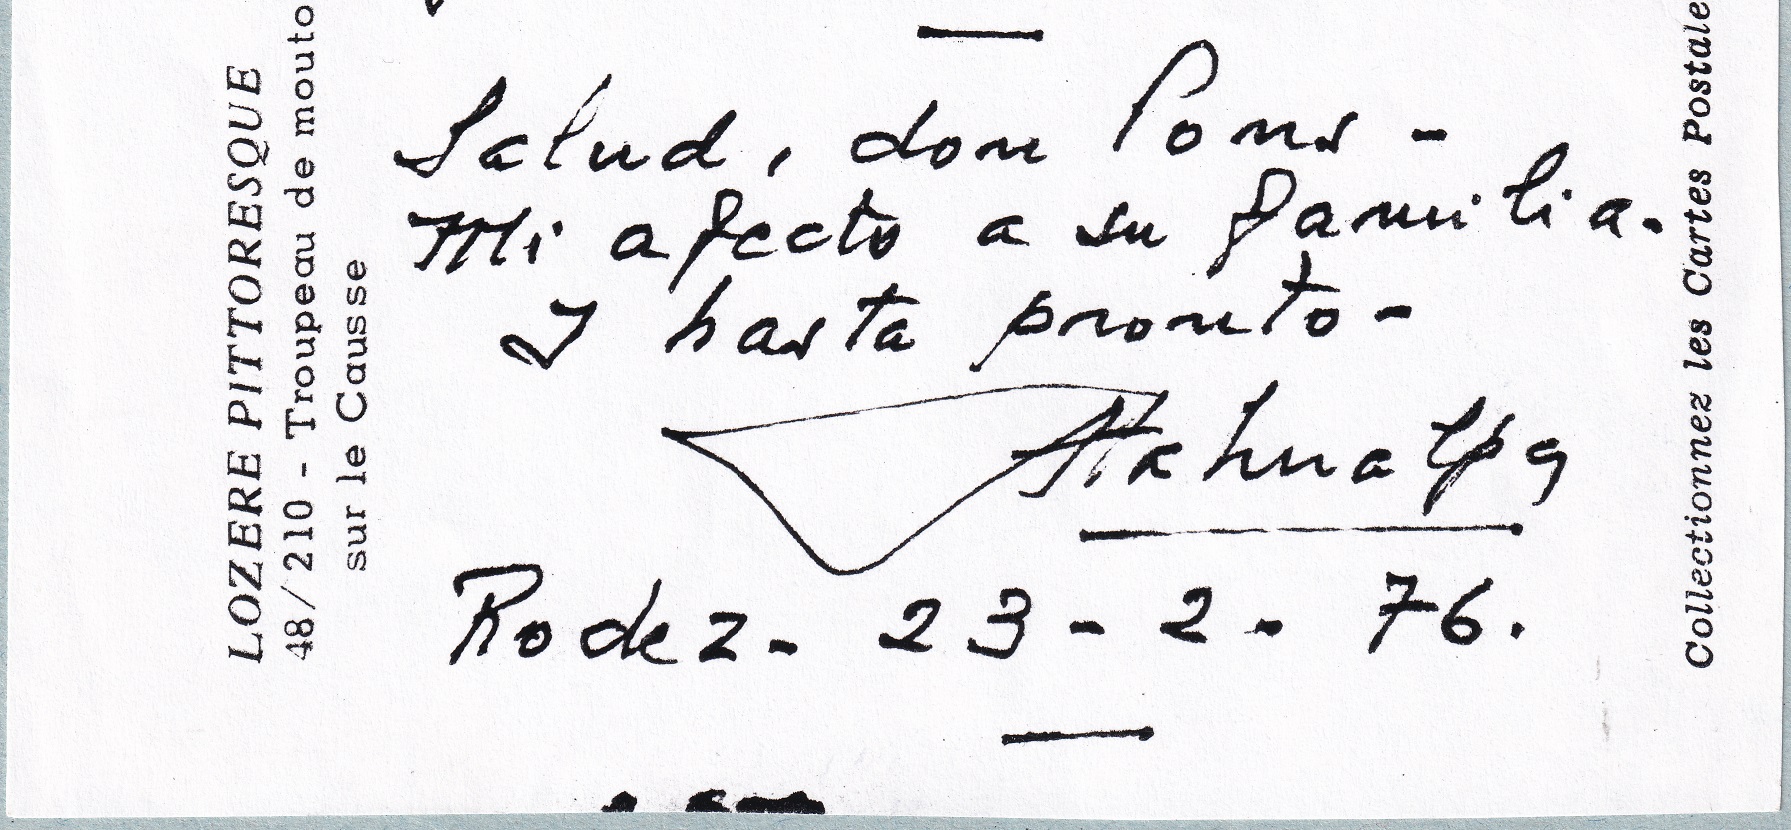 LOZERE PITTORESQUE
48/210 - Troupeau de mouto
sur le Causse
Salud, don Pons -
Mi afecto a su familia.
Y hasta pronto -
Atahualpa
Rodez - 23 - 2 - 76.
Collectionnez les Cartes Postale